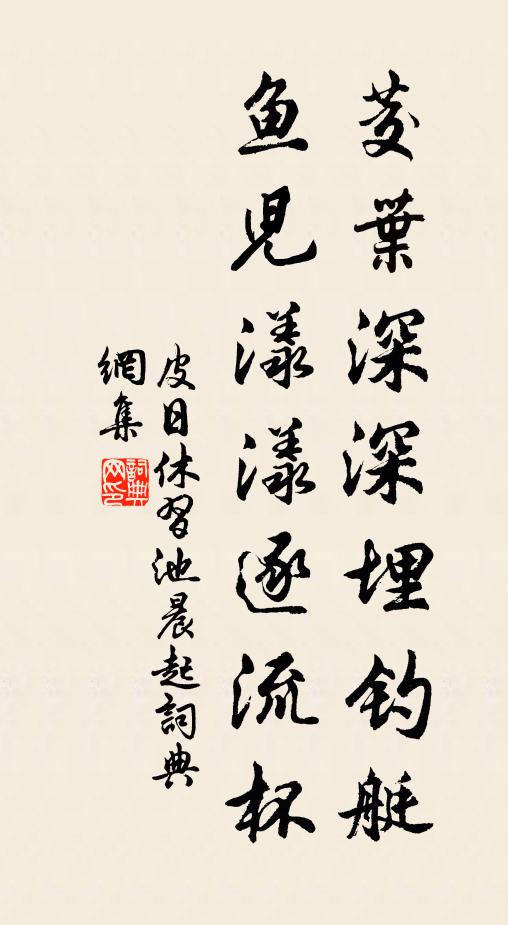 茭葉深深埋釣艇
鱼児漾漾逐流杯
皮日休習池晨起詞典
網集
詞典
网印